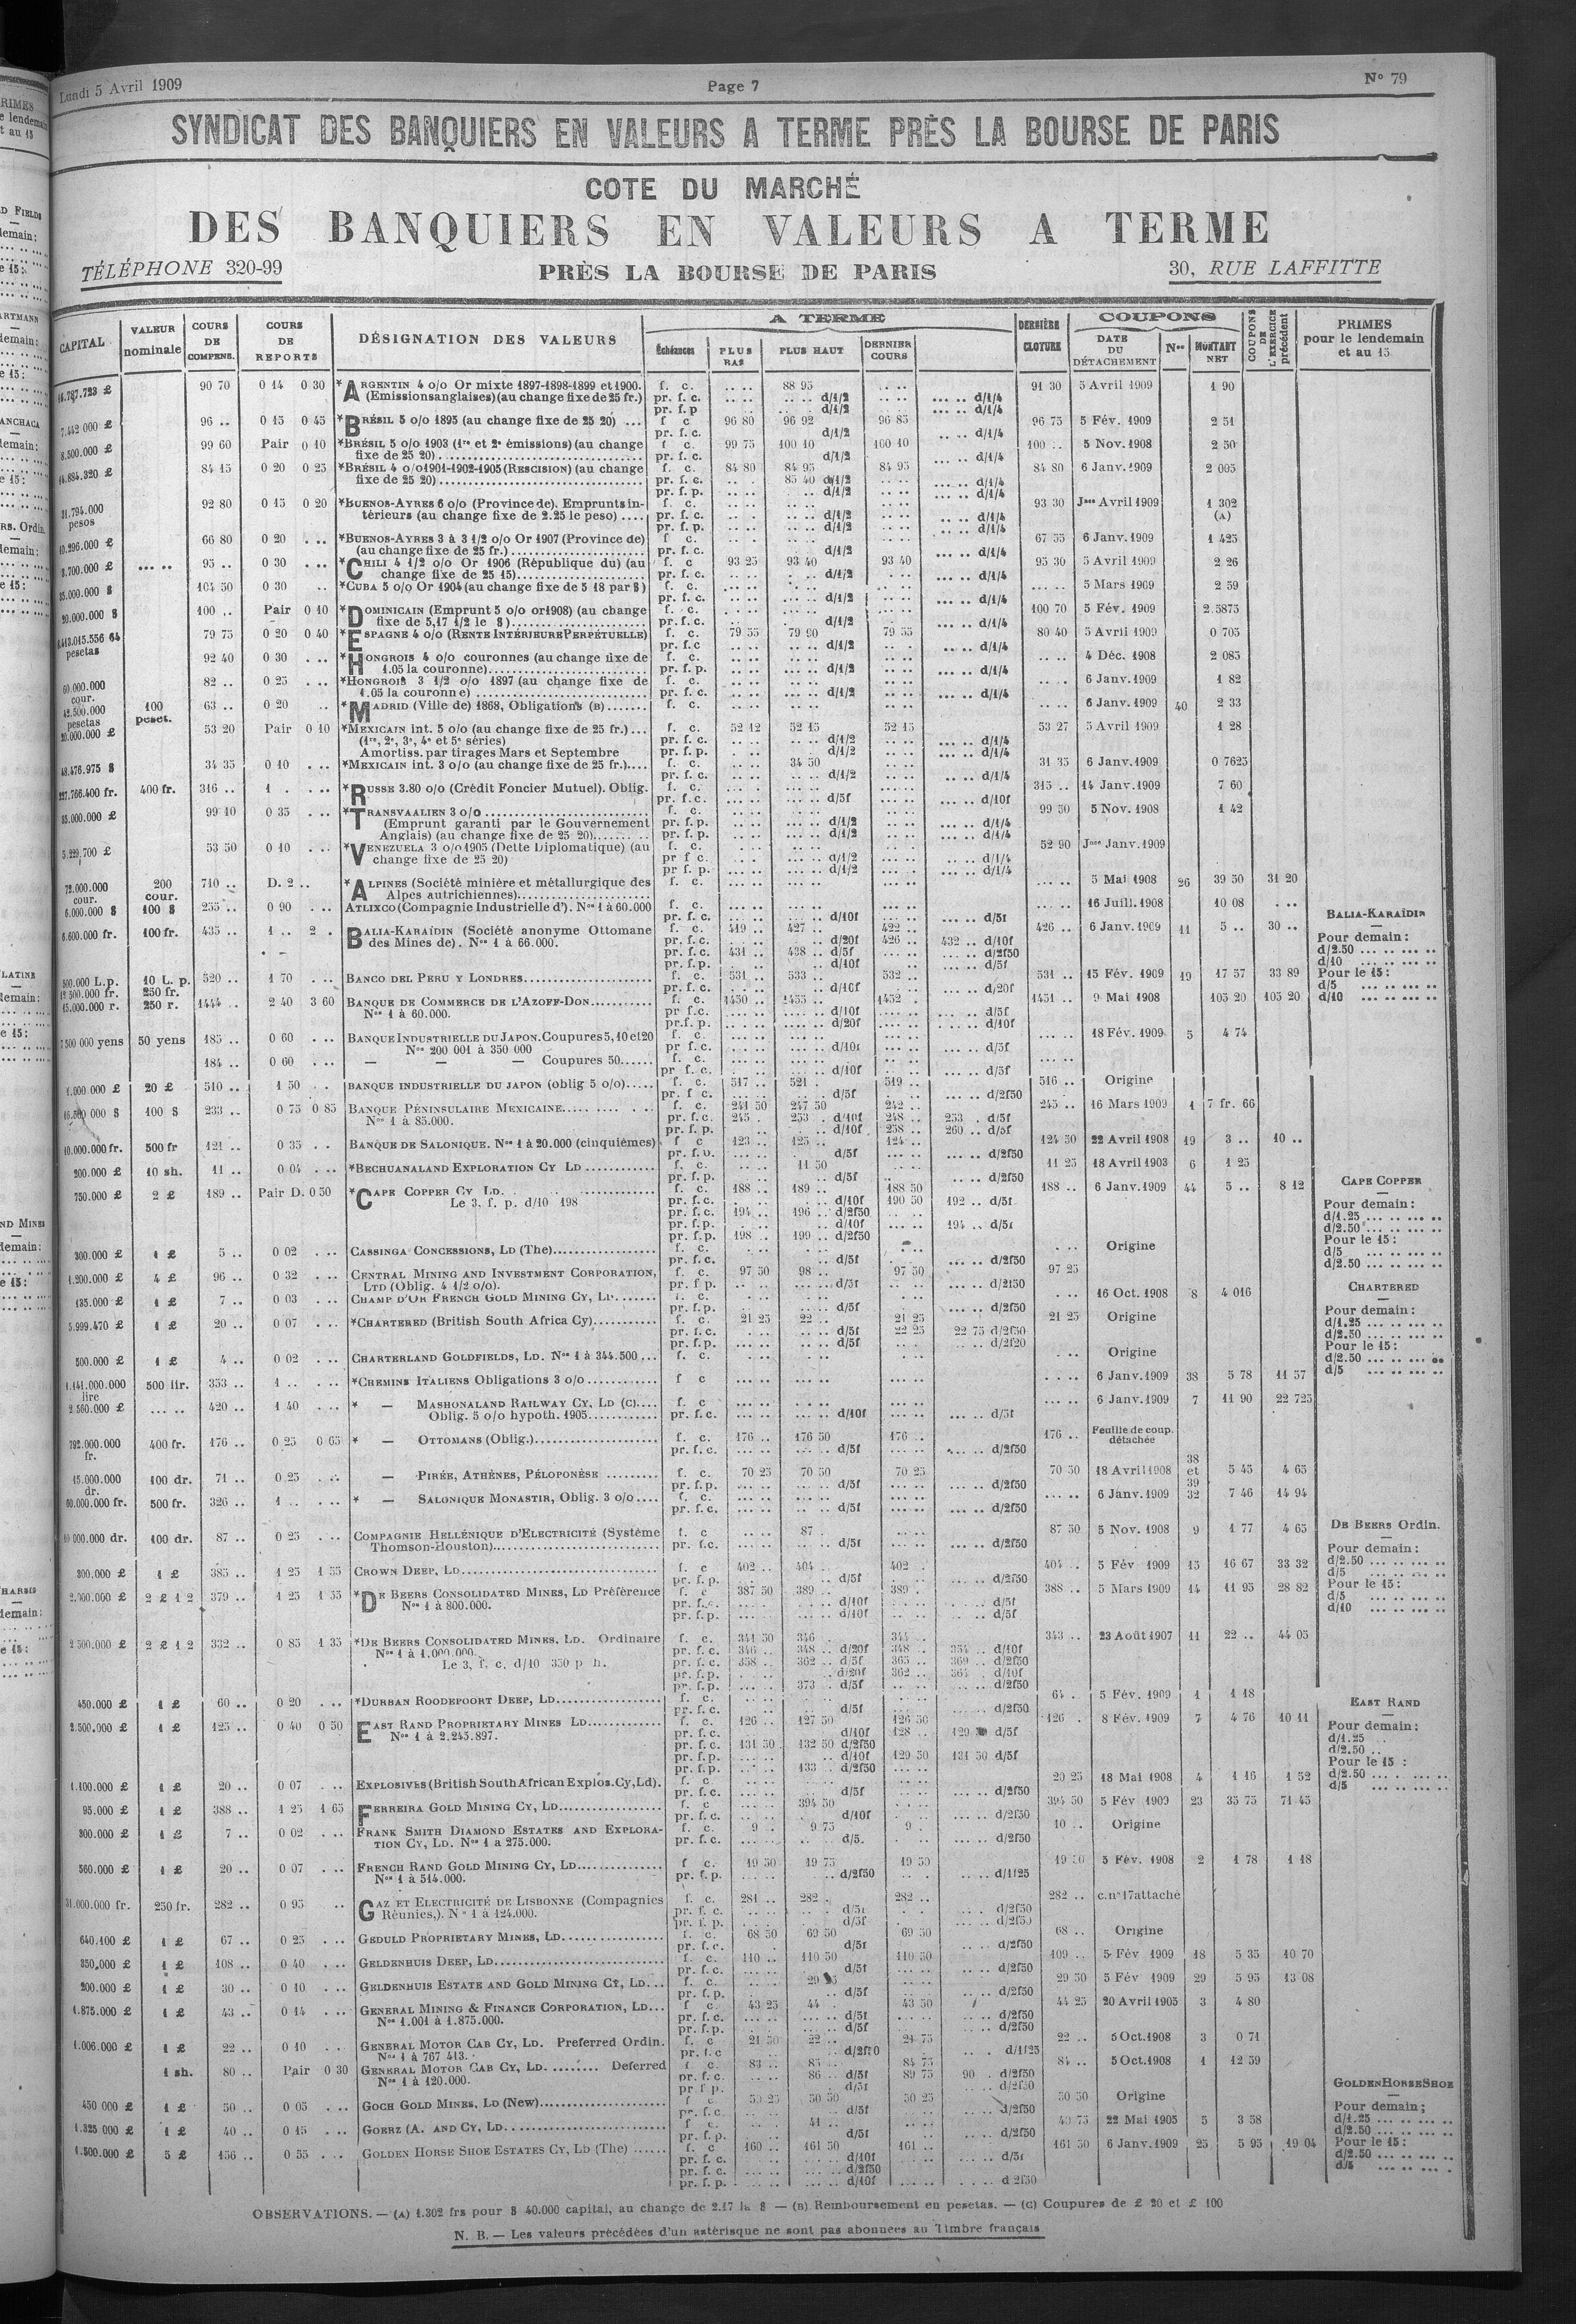 Lundi 5 Avril 1909
Page 7
N° 79
SYNDICAT DES BANQUIERS EN VALEURS A TERME PRÈS LA BOURSE DE PARIS
COTE DU MARCHÉ
DES BANQUIERS EN VALEURS A TERME
TÉLÉPHONE 320-99
PRÈS LA BOURSE DE PARIS
30, RUE LAFFITTE
CAPITAL
VALEUR nominale
COURS DE COMPENS.
COURS DE REPORTS
DÉSIGNATION DES VALEURS
A TERME
Échéances
PLUS BAS
PLUS HAUT
DERNIER COURS
DERNIÈRE CLOTURE
COUPONS
DATE DU DÉTACHEMENT
Nos
MONTANT NET
COUPONS DE L'EXERCICE précédent
PRIMES pour le lendemain et au 15
90 70 0 14 0 30 *ARGENTIN 4 o/o Or mixte 1897-1898-1899 et 1900. f. c. 88 95 91 30 5 Avril 1909 1 90
(Emissions anglaises) (au change fixe de 25 fr.) pr. f. c. d/1/2 d/1/4
pr. f. p d/1/2 d/1/4
7.442 000 £ 96 .. 0 15 0 45 *BRÉSIL 5 o/o 1895 (au change fixe de 25 20) ... f c 96 80 96 92 96 85 96 75 5 Fév. 1909 2 51
pr. f. c. d/1/2 d/1/4
8.500.000 £ 99 60 Pair 0 10 *BRÉSIL 5 o/o 1903 (1re et 2e émissions) (au change f c. 99 75 100 10 100 10 100 .. 5 Nov. 1908 2 50
fixe de 25 20) pr. f. c. d/1/2 d/1/4
14.884.320 £ 84 15 0 20 0 25 *BRÉSIL 4 o/o 1901-1902-1905 (RESCISION) (au change f. c. 84 80 84 95 84 95 84 80 6 Janv. 1909 2 005
fixe de 25 20) pr. f. c. 85 40 d/1/2 d/1/4
pr. f. p. d/1/2 d/1/4
31.794.000 pesos 92 80 0 15 0 20 *BUENOS-AYRES 6 o/o (Province de). Emprunts in- f. c. 93 30 Jce Avril 1909 1 302
térieurs (au change fixe de 2.25 le peso) .... pr. f. c. d/1/2 d/1/4 (A)
pr. f. p. d/1/2 d/1/4
10.296.000 £ 66 80 0 20 *BUENOS-AYRES 3 à 3 1/2 o/o Or 1907 (Province de) f c. 67 55 6 Janv. 1909 1 425
(au change fixe de 25 fr.) pr. f. c. d/1/2 d/1/4
3.700.000 £ 95 .. 0 30 *CHILI 4 1/2 o/o Or 1906 (République du) (au f. c 93 25 93 40 93 40 95 30 5 Avril 1909 2 26
change fixe de 25 15) pr. f. c. d/1/2 d/1/4
35.000.000 $ 104 50 0 30 *CUBA 5 o/o Or 1904 (au change fixe de 5 18 par $) f. c. 5 Mars 1909 2 59
pr. f. c. d/1/2 d/1/4
20.000.000 $ 100 .. Pair 0 10 *DOMINICAIN (Emprunt 5 o/o or 1908) (au change f. c. 100 70 5 Fév. 1909 2.5875
fixe de 5,17 1/2 le $) pr. f. c. d/1/2 d/1/4
pesetas 79 75 0 20 0 40 *ESPAGNE 4 o/o (RENTE INTÉRIEURE PERPÉTUELLE) f. c. 79 55 79 90 79 55 80 40 5 Avril 1909 0 705
pr. f. c d/1/2 d/1/4
92 40 0 30 *HONGROIS 4 o/o couronnes (au change fixe de f. c. 4 Déc. 1908 2 085
1.05 la couronne) pr. f. p. d/1/2 d/1/4
60.000.000 cour. 82 .. 0 25 *HONGROIS 3 1/2 o/o 1897 (au change fixe de f. c. 6 Janv. 1909 1 82
1.05 la couronne) pr. f. c. d/1/2 d/1/4
42.500.000 pesetas 100 peset. 63 .. 0 20 *MADRID (Ville de) 1868, Obligations (B) f. c. 6 Janv. 1909 40 2 33
20.000.000 £ 53 20 Pair 0 10 *MEXICAIN int. 5 o/o (au change fixe de 25 fr.) f. c. 52 12 52 15 52 15 53 27 5 Avril 1909 1 28
(1re, 2e, 3e, 4e et 5e séries) pr. f. c. d/1/2 d/1/4
Amortiss. par tirages Mars et Septembre pr. f. p. d/1/2 d/1/4
48.476.975 $ 34 35 0 10 *MEXICAIN int. 3 o/o (au change fixe de 25 fr.) f. c. 34 50 6 Janv. 1909 0 7625
pr. f. c. d/1/2 d/1/4
227.766.400 fr. 400 fr. 316 .. 1 *RUSSE 3.80 o/o (Crédit Foncier Mutuel). Oblig. f. c. 315 .. 14 Janv. 1909 7 60
pr. f. c. d/5f d/10f
35.000.000 £ 99 10 0 35 *TRANSVAALIEN 3 o/o f. c. 99 50 5 Nov. 1908 1 42
(Emprunt garanti par le Gouvernement pr. f. p. d/1/2 d/1/4
Anglais) (au change fixe de 25 20) pr. f. p. d/1/2 d/1/4
5.229.700 £ 53 50 0 10 *VENEZUELA 3 o/o 1905 (Dette Diplomatique) (au f. c. 52 90 Jce Janv. 1909
change fixe de 25 20) pr f c. d/1/2 d/1/4
pr f p. d/1/2 d/1/4
72.000.000 cour. 200 cour. 710 .. D. 2 .. *ALPINES (Société minière et métallurgique des f. c. 5 Mai 1908 26 39 50 31 20
Alpes autrichiennes)
6.000.000 $ 100 $ 255 .. 0 90 ATLIXCO (Compagnie Industrielle d'). Nos 1 à 60.000 f. c. 16 Juill. 1908 10 08
pr. f. c. d/10f d/5f
6.600.000 fr. 100 fr. 435 .. 1 .. 2 . BALIA-KARAÏDIN (Société anonyme Ottomane f. c. 419 .. 427 .. 422 .. 426 .. 6 Janv. 1909 11 5 .. 30 ..
des Mines de). Nos 1 à 66.000. pr. f. c. d/20f 426 .. 432 .. d/10f
pr. f. c. 431 .. 438 .. d/5f d/2f50
pr. f. p. d/10f d/5f
500.000 L.p. 10 L. p. 520 .. 1 70 BANCO DEL PERU Y LONDRES f. c. 531 .. 533 .. 532 .. 531 .. 15 Fév. 1909 19 17 57 33 89
12 500.000 fr. 250 fr. pr. f. c. d/10f d/20f
45.000.000 r. 250 r. 1444 .. 2 40 3 60 BANQUE DE COMMERCE DE L'AZOFF-DON f. c. 1450 .. 1455 .. 1452 . 1451 .. 9 Mai 1908 105 20 105 20
Nos 1 à 60.000. pr f.c. d/10f d/5f
pr.f. p. d/20f d/10f
7 500 000 yens 50 yens 185 .. 0 60 BANQUE INDUSTRIELLE DU JAPON. Coupures 5, 10 et 20 f. c 18 Fév. 1909 5 4 74
Nos 200 001 à 350 000 pr f. c. d/10f d/5f
184 .. 0 60 — — — Coupures 50 f. c.
pr f. c. d/10f d/5f
20 £ 510 .. 1 50 BANQUE INDUSTRIELLE DU JAPON (oblig 5 o/o) f. c. 517 .. 521 519 .. 516 .. Origine
pr. f c. d/5f d/2f50
100 $ 233 .. 0 75 0 85 BANQUE PÉNINSULAIRE MEXICAINE f. c. 241 50 247 50 242 .. 245 .. 16 Mars 1909 1 7 fr. 66
Nos 1 à 85.000. pr. f. c. 245 . 253 . d/10f 248 .. 253 . d/5f
pr. f. p. d/10f 258 .. 260 .. d/5f
10.000.000 fr. 500 fr 121 .. 0 35 BANQUE DE SALONIQUE. Nos 1 à 20.000 (cinquièmes) f c 123 .. 125 .. 124 .. 124 50 22 Avril 1908 19 3 .. 10 ..
d/5f d/2f50
200.000 £ 10 sh. 11 .. 0 04 *BECHUANALAND EXPLORATION CY LD f. c. 11 50 11 25 18 Avril 1903 6 1 25
pr. f. p. d/5f d/2f50
750.000 £ 2 £ 189 .. Pair D. 0 50 *CAPE COPPER CY LD. f. c. 188 .. 189 .. 188 50 188 .. 6 Janv. 1909 44 5 .. 8 12
Le 3, f. p. d/10 198 pr. f. c. d/10f 190 50 192 .. d/5f
pr. f. c. 194 .. 196 .. d/2f50
pr. f. p. d/10f 194 .. d/5f
pr. f. p. 198 .. 199 .. d/2f50
300.000 £ 1 £ 5 .. 0 02 CASSINGA CONCESSIONS, LD (The) f. c. Origine
pr. f. c. d/5f d/2f50
1.200.000 £ 4 £ 96 .. 0 32 CENTRAL MINING AND INVESTMENT CORPORATION, f. c. 97 50 98 .. 97 50 97 25
LTD (Oblig. 4 1/2 o/o). pr. f p. d/5f d/2f50
135.000 £ 1 £ 7 .. 0 03 CHAMP D'OR FRENCH GOLD MINING CY, LD f. c. 16 Oct. 1908 8 4 016
pr. f. p. d/5f d/2f50
5.999.470 £ 1 £ 20 .. 0 07 *CHARTERED (British South Africa Cy) f. c. 21 25 22 .. 21 25 21 25 Origine
pr. f. c. d/5f 22 25 22 75 d/2f50
pr. f. p. d/5f d/2f20
500.000 £ 1 £ 4 .. 0 02 CHARTERLAND GOLDFIELDS, LD. Nos 1 à 344.500 f. c. Origine
1.141.000.000 lire 500 lir. 353 .. 1 .. *CHEMINS ITALIENS Obligations 3 o/o f c 6 Janv. 1909 38 5 78 11 57
2.560.000 £ 420 .. 1 40 * — MASHONALAND RAILWAY CY, LD (C) f. c 6 Janv. 1909 7 11 90 22 725
Oblig. 5 o/o hypoth. 1905 pr. f. c. d/10f d/5f
792.000.000 fr. 400 fr. 176 .. 0 25 0 65 * — OTTOMANS (Oblig.) f. c. 176 .. 176 50 176 .. 176 .. Feuille de coup. détachée
pr. f. c. d/5f d/2f50
15.000.000 dr. 100 dr. 71 .. 0 25 — PIRÉE, ATHÈNES, PÉLOPONÈSE f. c. 70 25 70 50 70 25 70 50 18 Avril 1908 38 et 39 5 45 4 65
pr. f. p. d/5f d/2f50
60.000.000 fr. 500 fr. 326 .. 1 .. * — SALONIQUE MONASTIR, Oblig. 3 o/o f. c. 6 Janv. 1909 32 7 46 14 94
pr. f. c. d/5f d/2f50
100 dr. 87 .. 0 25 COMPAGNIE HELLÉNIQUE D'ELECTRICITÉ (Système f. c 87 . 87 50 5 Nov. 1908 9 1 77 4 65
Thomson-Houston) pr. f.c. d/5f d/2f50
300.000 £ 1 £ 385 .. 1 25 1 55 CROWN DEEP, LD f. c 402 .. 404 .. 402 . 404 .. 5 Fév 1909 15 16 67 33 32
pr. f. p. d/5f d/2f50
2.000.000 £ 2 £ 1 2 379 .. 1 25 1 55 *DE BEERS CONSOLIDATED MINES, LD Préférence f. c 387 50 389 .. 389 . 388 .. 5 Mars 1909 14 11 95 28 82
Nos 1 à 800.000. pr. f. c. d/10f d/5f
pr. f. p. d/10f d/5f
2 500.000 £ 2 £ 1 2 332 .. 0 85 1 35 *DE BEERS CONSOLIDATED MINES, LD. Ordinaire f. c. 341 50 346 . 344 .. 343 .. 23 Août 1907 11 22 .. 44 05
Nos 1 à 1.000.000. pr. f. c. 346 .. 348 .. d/20f 348 .. 354 .. d/10f
Le 3, f. c. d/10 350 p h. pr. f. c. 358 .. 362 .. d/5f 365 .. 369 .. d/2f50
pr. f. p. d/20f 362 .. 364 . d/10f
pr. f. p. 373 .. d/5f d/2f50
450.000 £ 1 £ 60 .. 0 20 *DURBAN ROODEPOORT DEEP, LD f. c. 64 . 5 Fév. 1909 1 1 18
pr. f. c. d/5f d/2f50
2.500.000 £ 1 £ 125 .. 0 40 0 50 EAST RAND PROPRIETARY MINES LD f. c. 126 .. 127 50 126 50 126 . 8 Fév. 1909 7 4 76 10 11
Nos 1 à 2.245.897. pr. f. c. d/10f 128 .. 129 d/5f
pr. f. c. 131 50 132 50 d/2f50
pr. f. p. d/10f 129 50 131 50 d/5f
pr. f. p. 133 .. d/2f50
1.100.000 £ 1 £ 20 .. 0 07 EXPLOSIVES (British South African Explos. Cy, Ld). f. c. 20 25 18 Mai 1908 4 1 16 1 52
pr. f. c. d/5f d/2f50
95.000 £ 1 £ 388 .. 1 25 1 65 FERREIRA GOLD MINING CY, LD f. c 394 50 394 50 5 Fév 1909 23 35 75 71 45
pr. f. c. d/10f d/2f50
300.000 £ 1 £ 7 .. 0 02 FRANK SMITH DIAMOND ESTATES AND EXPLORA- f. c. 9 .. 9 75 9 . 10 .. Origine
TION CY, LD. Nos 1 à 275.000. pr. f. c. d/5. d/2f50
560.000 £ 1 £ 20 .. 0 07 FRENCH RAND GOLD MINING CY, LD f c. 19 50 19 75 19 50 5 Fév. 1908 2 1 78 1 18
Nos 1 à 514.000. pr. f. p. d/2f50 d/1f25
31.000.000 fr. 250 fr. 282 .. 0 95 GAZ ET ELECTRICITÉ DE LISBONNE (Compagnies f. c. 281 .. 282 . 282 .. 282 .. c. no 17 attaché
Réunies,). No 1 à 124.000. pr. f. c. d/5f d/2f50
pr. f. p. d/5f d/2f50
640.100 £ 1 £ 67 .. 0 25 GEDULD PROPRIETARY MINES, LD f. c. 68 50 69 50 69 50 68 .. Origine
pr. f. c. d/5f d/2f50
350,000 £ 1 £ 108 .. 0 40 GELDENHUIS DEEP, LD f. c. 110 .. 110 50 110 50 109 .. 5 Fév 1909 18 5 35 10 70
pr. f. c. d/5f d/2f50
200.000 £ 1 £ 30 .. 0 10 GELDENHUIS ESTATE AND GOLD MINING CY, LD f. c. 29 50 5 Fév 1909 29 5 95 13 08
pr. f. p. d/5f d/2f50
1.875.000 £ 1 £ 43 .. 0 14 GENERAL MINING & FINANCE CORPORATION, LD f c. 43 25 44 . 43 50 44 25 20 Avril 1905 3 4 80
Nos 1.001 à 1.875.000. pr. f. c. d/5f d/2f50
pr. f. p. d/5f d/2f50
1.006.000 £ 1 £ 22 .. 0 10 GENERAL MOTOR CAB CY, LD. Preferred Ordin. f. c 21 50 22 .. 21 75 22 .. 5 Oct. 1908 3 0 71
Nos 1 à 767 413. pr. f. c d/2f50 d/1f25
1 sh. 80 .. Pair 0 30 GENERAL MOTOR CAB CY, LD. Deferred f c. 83 .. 85 .. 84 75 84 .. 5 Oct. 1908 1 12 59
Nos 1 à 120.000. pr. f. c. 86 .. d/5f 89 75 90 . d/2f50
pr f p. d/5f d/2f50
450 000 £ 1 £ 50 .. 0 05 GOCH GOLD MINES, LD (New) f c. 50 25 50 50 50 25 50 50 Origine
pr. f. c. d/5f d/2f50
1.325 000 £ 1 £ 40 .. 0 15 GOERZ (A. AND CY, LD f c. 41 .. 40 75 22 Mai 1905 5 3 58
pr. f. p. d/5f d/2f50
1.500.000 £ 5 £ 156 .. 0 55 GOLDEN HORSE SHOE ESTATES CY, LD (The) f. c 160 .. 161 50 161 .. 161 50 6 Janv. 1909 25 5 95 19 04
pr. f. c. d/10f d/5f
pr. f. c. d/2f50
pr. f. p. d/10f d 2f50
BALIA-KARAÏDIN
Pour demain:
d/2.50
d/10
Pour le 15:
d/5
d/10
CAPE COPPER
Pour demain:
d/1.25
d/2.50
Pour le 15:
d/5
d/2.50
CHARTERED
Pour demain:
d/1.25
d/2.50
Pour le 15:
d/2.50
d/5
DE BEERS Ordin.
Pour demain:
d/2.50
d/5
Pour le 15:
d/5
d/10
EAST RAND
Pour demain:
d/1.25
d/2.50
Pour le 15 :
d/2.50
d/5
GOLDEN HORSE SHOE
Pour demain;
d/1.25
d/2.50
Pour le 15:
d/2.50
d/5
OBSERVATIONS. — (A) 1.302 frs pour $ 40.000 capital, au change de 2.17 la $ — (B) Remboursement en pesetas. — (C) Coupures de £ 20 et £ 100
N. B. — Les valeurs précédées d'un astérisque ne sont pas abonnées au Timbre français